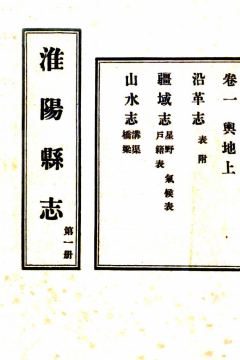 淮陽縣志
第一册
卷一 輿地上
沿革志 表附
疆域志 星野 氣候表
戶籍表
山水志 溝渠
橋梁